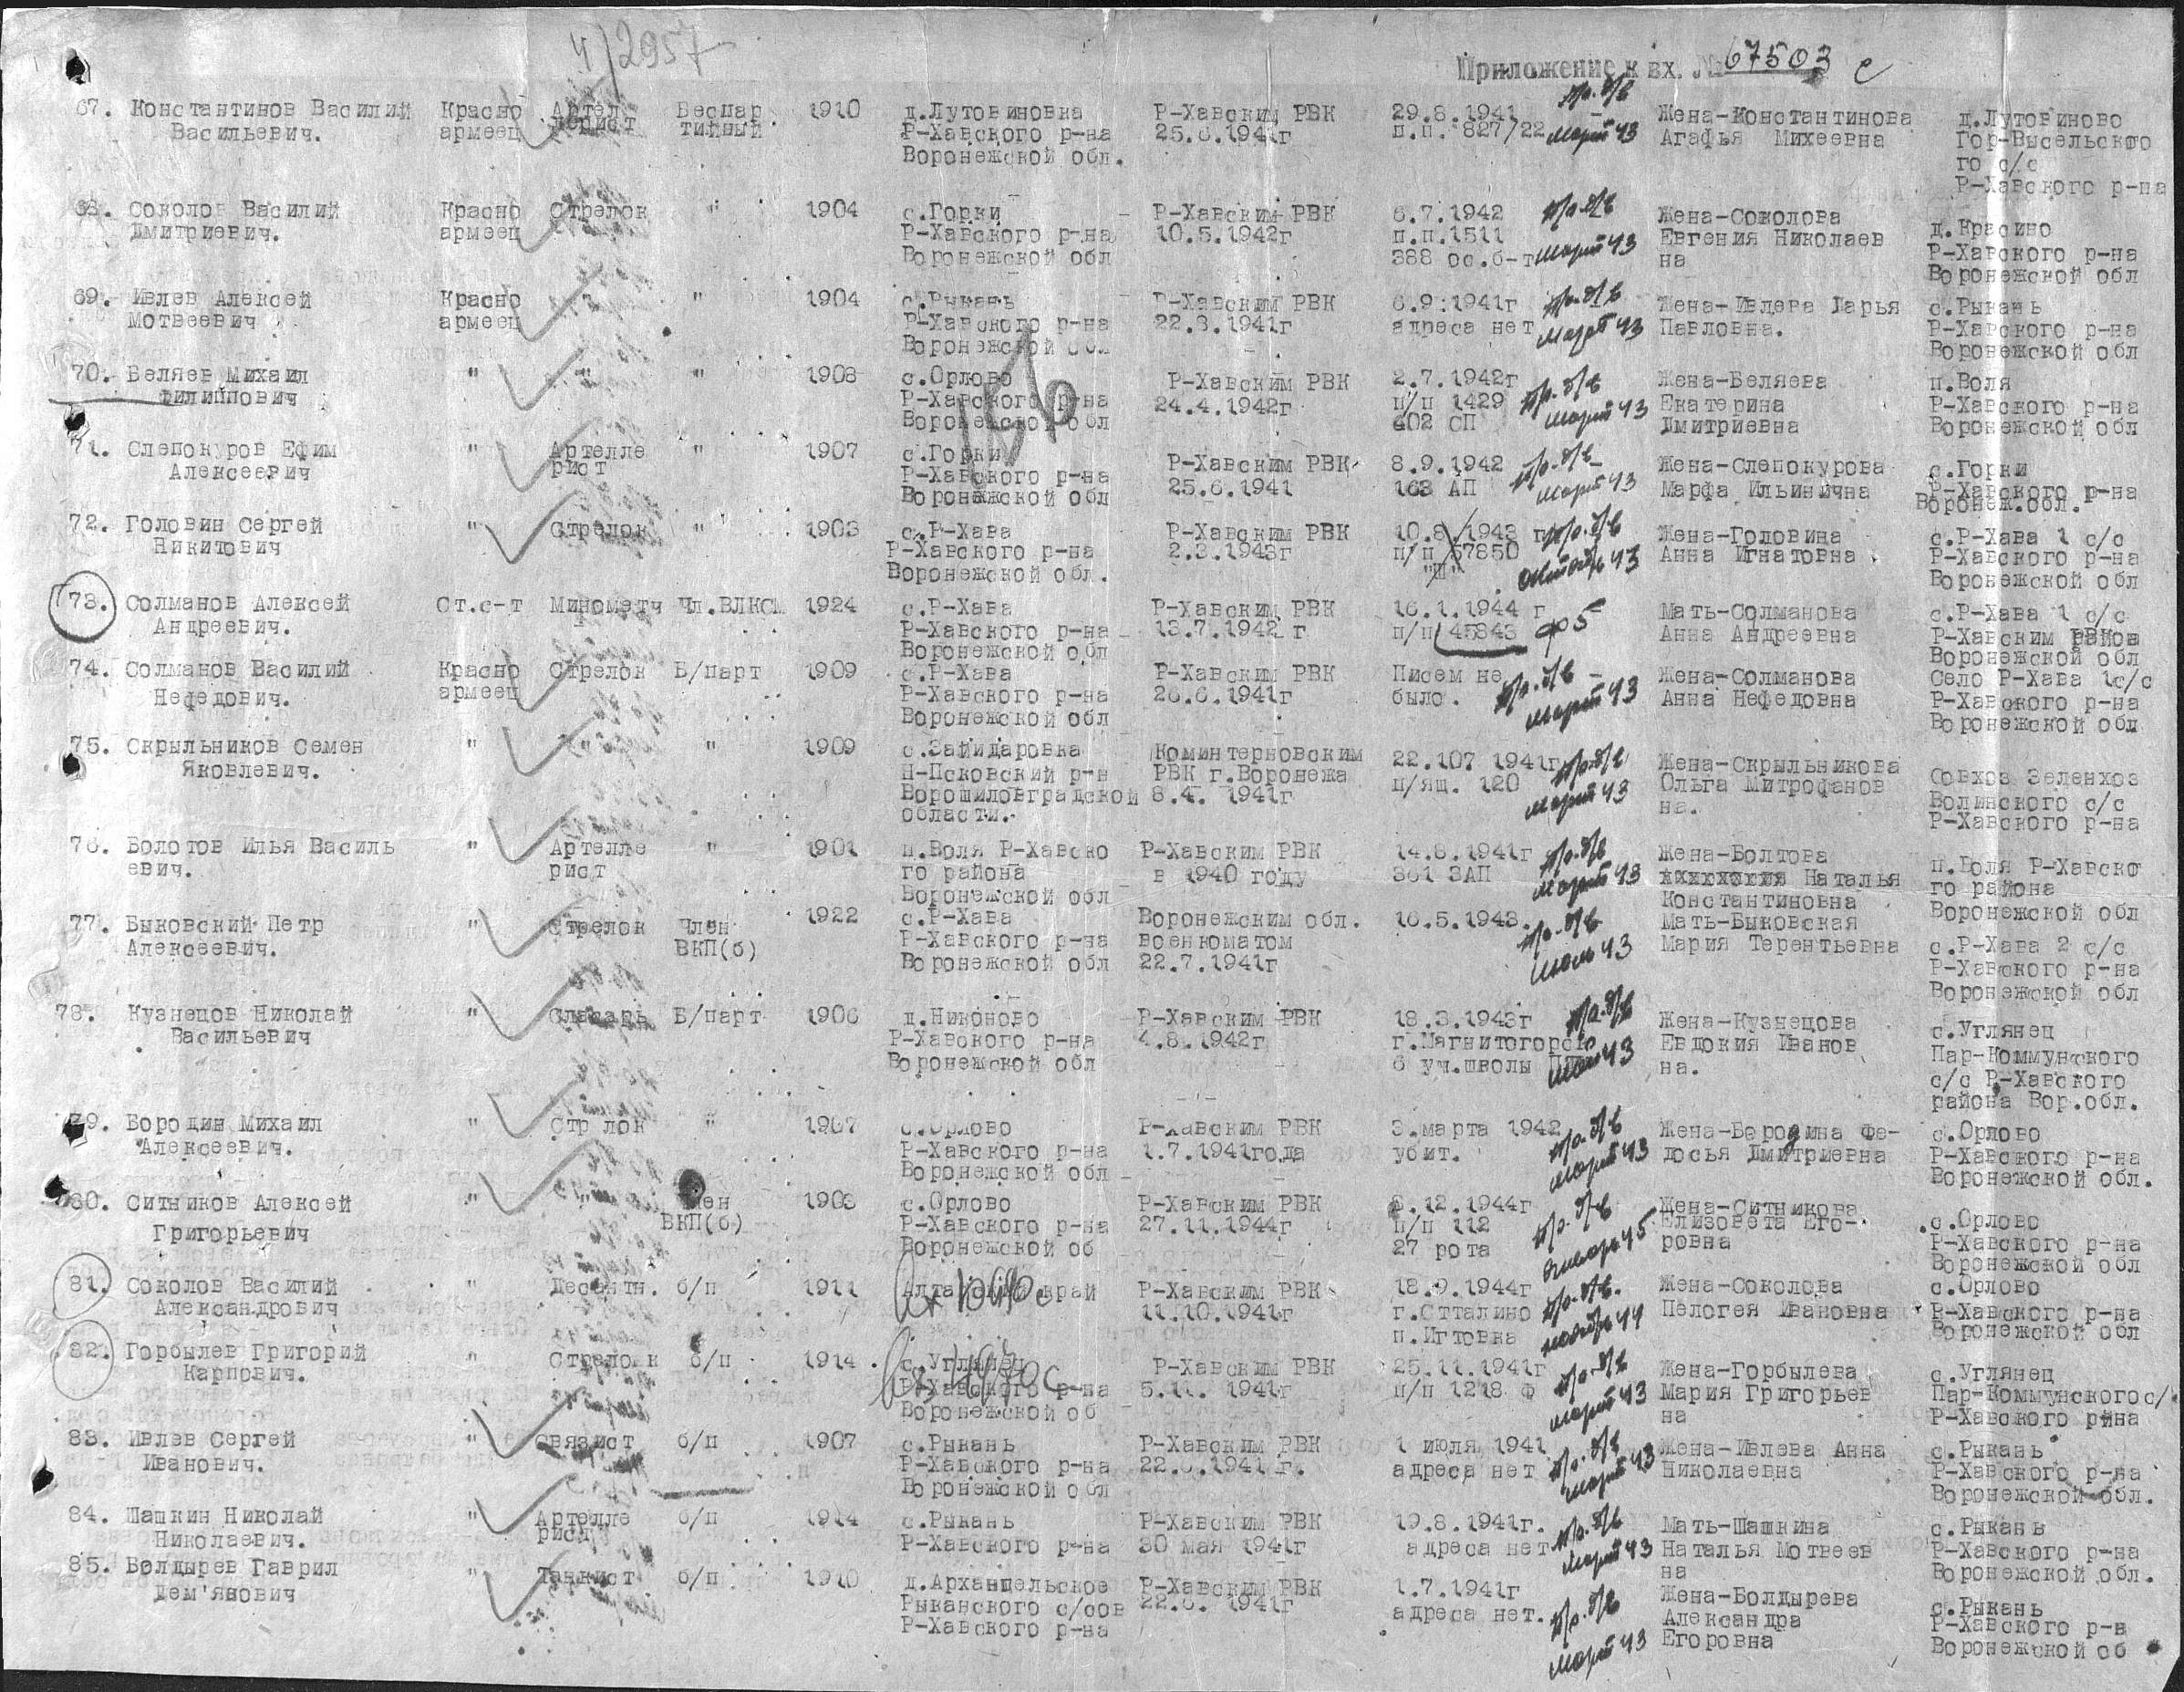 4/2957
Приложение к вх. № 67503 с
67. Константинов Василий Красно Артел Беспар 1910 д.Лутовиновка Р-Хавским РВК 29.8.1941 пр. б/в Жена-Константинова д.Лутовиново
Васильевич. армеец лерист тийный Р-Хавского р-на 25.6.1941г п.п. 827/22 март 43 Агафья Михеевна Гор-Высельского
Воронежской обл. го с/с
Р-Хавского р-на
68. Соколов Василий Красно Стрелок " 1904 с.Горки Р-Хавским РВК 6.7.1942 пр. б/в Жена-Соколова д.Красино
Дмитриевич. армеец Р-Хавского р-на 10.5.1942г п.п.1511 Евгения Николаев Р-Хавского р-на
Воронежской обл 388 ос.б-т март 43 на Воронежской обл
69. Ивлев Алексей Красно " 1904 с.Рыкань Р-Хавским РВК 6.9.1941г пр. б/в Жена-Ивлева Дарья с.Рыкань
Мотвеевич армеец Р-Хавского р-на 22.8.1941г адреса нет март 43 Павловна. Р-Хавского р-на
Воронежской обл Воронежской обл
70. Беляев Михаил " " " 1908 с.Орлово Р-Хавским РВК 2.7.1942г пр. б/в Жена-Беляева п.Воля
Филиппович Р-Хавского р-на 24.4.1942г п/п 1429 март 43 Екатерина Р-Хавского р-на
Воронежской обл 602 СП Дмитриевна Воронежской обл
71. Слепокуров Ефим " Артелле " 1907 с.Горки Р-Хавским РВК 8.9.1942 пр. б/в Жена-Слепокурова с.Горки
Алексеевич рист Р-Хавского р-на 25.6.1941 163 АП март 43 Марфа Ильинична Р-Хавского р-на
Воронежской обл Воронеж.обл.
72. Головин Сергей " Стрелок " 1903 с.Р-Хава Р-Хавским РВК 10.8.1943 г пр. б/в Жена-Головина с.Р-Хава 1 с/с
Никитович Р-Хавского р-на 2.3.1943г п/п 57850 Анна Игнатовна Р-Хавского р-на
Воронежской обл. "Ш" октябрь 43 Воронежской обл
73. Солманов Алексей Ст.с-т Минометч Чл.ВЛКСМ 1924 с.Р-Хава Р-Хавским РВК 16.1.1944 г Мать-Солманова с.Р-Хава 1 с/с
Андреевич. Р-Хавского р-на 13.7.1942 г п/п 45843 ф 5 Анна Андреевна Р-Хавским
Воронежской обл Воронежской обл
74. Солманов Василий Красно Стрелок Б/парт 1909 с.Р-Хава Р-Хавским РВК Писем не пр. б/в Жена-Солманова Село Р-Хава 1с/с
Нефедович. армеец Р-Хавского р-на 26.6.1941г было. март 43 Анна Нефедовна Р-Хавского р-на
Воронежской обл Воронежской обл
75. Скрыльников Семен " " " 1909 с.Зайидаровка Коминтерновским 22.107 1941г пр. б/в Жена-Скрыльникова Совхоз Зеленхоз
Яковлевич. Н-Псковский р-н РВК г.Воронежа п/ящ. 120 март 43 Ольга Митрофанов Волинского с/с
Ворошиловградской 8.4. 1941г на. Р-Хавского р-на
области.
76. Болотов Илья Василь " Артелле " 1901 п.Воля Р-Хавско Р-Хавским РВК 14.8.1941г пр. б/в Жена-Болтова п.Воля Р-Хавско
евич. рист го района в 1940 году 361 ЗАП март 43 Наталья го района
Воронежской обл Константиновна Воронежской обл
77. Быковский Петр " Стрелок Член 1922 с.Р-Хава Воронежским обл. 16.5.1943. пр. б/в Мать-Быковская с.Р-Хава 2 с/с
Алексеевич. ВКП(б) Р-Хавского р-на военкоматом июль 43 Мария Терентьевна Р-Хавского р-на
Воронежской обл 22.7.1941г Воронежской обл
78. Кузнецов Николай " Слесарь Б/парт 1906 д.Никоново Р-Хавским РВК 18.3.1943г пр. б/в Жена-Кузнецова с.Углянец
Васильевич Р-Хавского р-на 4.8.1942г г.Магнитогорск Евдокия Иванов Пар-Коммунского
Воронежской обл 6 уч.школы май 43 на. с/с Р-Хавского
района Вор.обл.
79. Бородин Михаил " Стр лок " 1907 с.Орлово Р-Хавским РВК 3.марта 1942 пр. б/в Жена-Бородина Фе- с.Орлово
Алексеевич. Р-Хавского р-на 1.7.1941года убит. март 43 досья Дмитриевна Р-Хавского р-на
Воронежской обл Воронежской обл.
80. Ситников Алексей " " Член 1903 с.Орлово Р-Хавским РВК 8.12.1944г пр. б/в Жена-Ситникова с.Орлово
Григорьевич ВКП(б) Р-Хавского р-на 27.11.1944г п/п 112 Елизовета Его- Р-Хавского р-на
Воронежской об 27 рота январь 45 ровна Воронежской обл
81. Соколов Василий " Десантн. б/п 1911 Алтайский край Р-Хавским РВК 18.9.1944г пр. б/в. Жена-Соколова с.Орлово
Александрович 11.10.1941г г.Стталино ноябрь 44 Пелогея Ивановна Р-Хавского р-на
п.Игтовка Воронежской обл
82. Горбылев Григорий " Стрелок к б/п 1914 с.Углянец Р-Хавским РВК 25.11.1941г пр. б/в Жена-Горбылева с.Углянец
Карпович. Р-Хавского р-на 5.11. 1941г п/п 1218 ф март 43 Мария Григорьев Пар-Коммунского с/
Воронежской об на Р-Хавского рйна
83. Ивлев Сергей " Связист б/п 1907 с.Рыкань Р-Хавским РВК 1 июля 1941 пр. б/в Жена-Ивлева Анна с.Рыкань
Иванович. Р-Хавского р-на 22.6.1941 г. адреса нет март 43 Николаевна Р-Хавского р-на
Воронежской обл Воронежской обл.
84. Шашкин Николай " Артелле б/п 1914 с.Рыкань Р-Хавским РВК 19.8.1941г. пр. б/в Мать-Шашкина с.Рыкань
Николаевич. рист Р-Хавского р-на 30 мая 1941г адреса нет март 43 Наталья Мотвеев Р-Хавского р-на
на Воронежской обл.
85. Болдырев Гаврил " Танкист б/п 1910 д.Архангельское Р-Хавским РВК 1.7.1941г пр. б/в Жена-Болдырева с.Рыкань
Дем'янович Рыканского с/сов 22.6. 1941г адреса нет. Александра Р-Хавского р-н
Р-Хавского р-на март 43 Егоровна Воронежской об